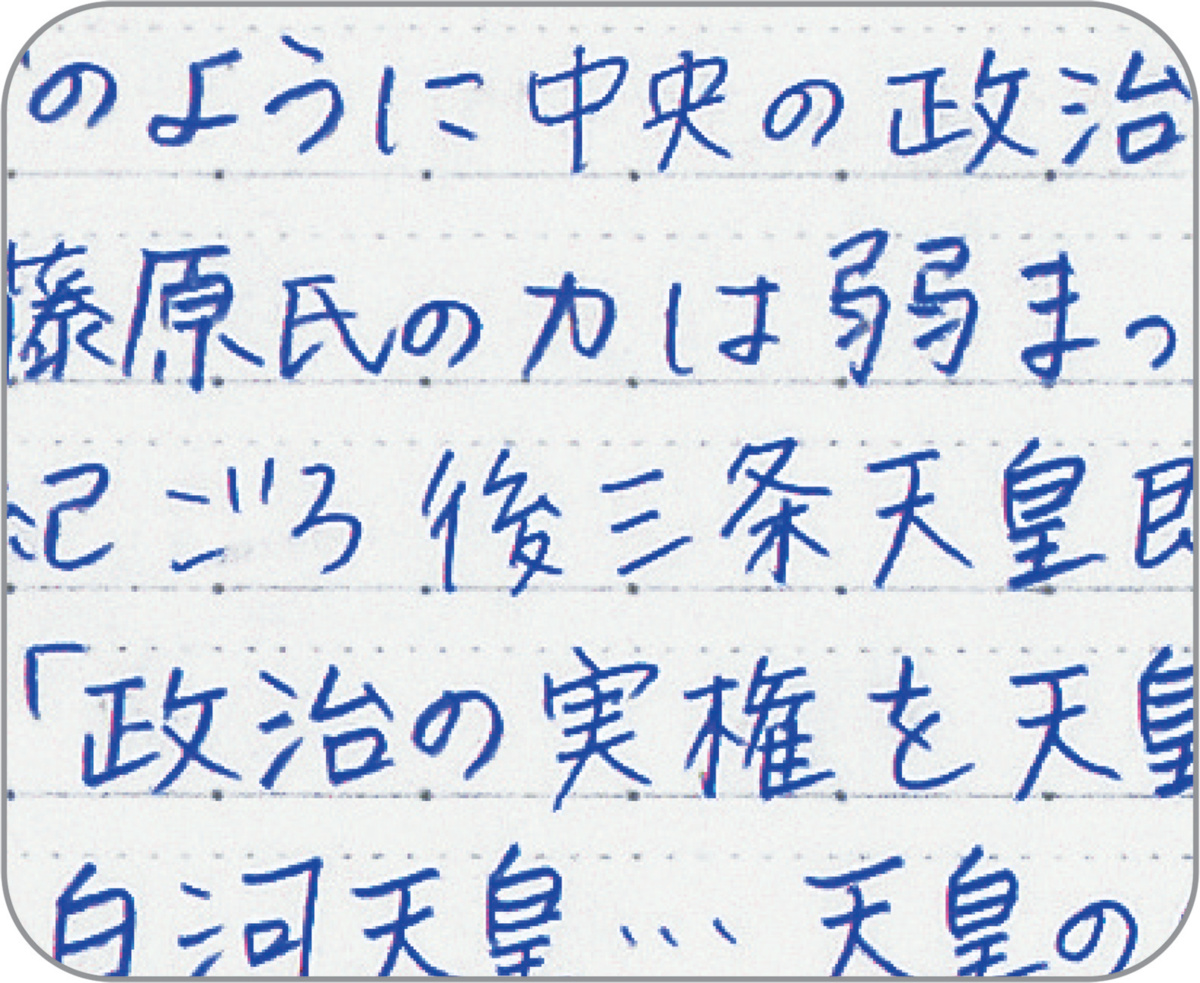 のように中央の政治
藤原氏の力は弱まっ
紀ごろ 後三条天皇即
「政治の実権を天皇
白河天皇… 天皇の